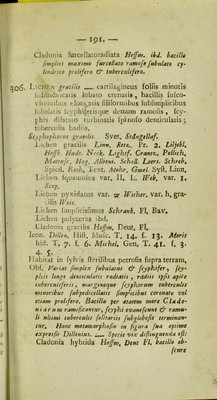 — 191. —
Cladonia furcellatoradiata Hoffm. ibd. bacillo
simplici maximo furcellato ramoso subulato cy-
lindrico prolifero & tuberculifero.
306. Lichen gracilis — cartilagineus foliis minutis
lobato crenatis, bacillis fusco-
virentibus elongatis filiformibus subsimplicibus
subulatis scyphiferisque dentato ramosis, scy-
phis dilatato turbinatis spinoso denticulatis;
tuberculis badiis.
Scyphophorus gracilis. Svet. Stångellaf.
Lichen gracilis Linn. Retz. Fr. 2. Liljebl.
Hoffl. Huds. Neck. Lightf. Crantz. Pollich.
Mattusc. Hag. Allioni. Scholl. Leers. Schreb.
Spiel. Roth, Tent. Mohr, Gmel Syst. Linn,
Lichen squamosus var. II, L. Web, var. 1.
Scop.
Lichen pyxidatus var. Wither, var. h, gra-
cilis Weis.
Lichen simplicissimus Schrank. Fl, Bav,
Lichen polyceras ibd.
Cladonia gracilis Hoffm, Deut, Fl,
Icon. Dillen, Hist, Musc. T. 14. f. 13. Moris
hist. T. 7. f. 6. Michel, Gen, T. 41. f. 3.
4. 5.
Habitat in sylvis sterilibus petrosis supra terram,
Obs, Variat simplex subulatus & scyphifer, scy-
phis longe denticulatis radiatis, radiis ipsis apice
tuberculiferis, margineque scypharum tuberculis
minoribus subpedicellatis simplicibus coronato vel
etiam prolifero. Bacilla per ætatem more Clado-
niarum ramificantur, scyphi evanescunt & ramu-
li ultimi tuberculis solitariis subglobosis terminan-
tur, Hanc metamorphosin in figura sua optime
expressit Dillenius. — Specie vix distinguenda est:
Cladonia hybrida Hoffm, Deut Fl. bacillo ob-
scure